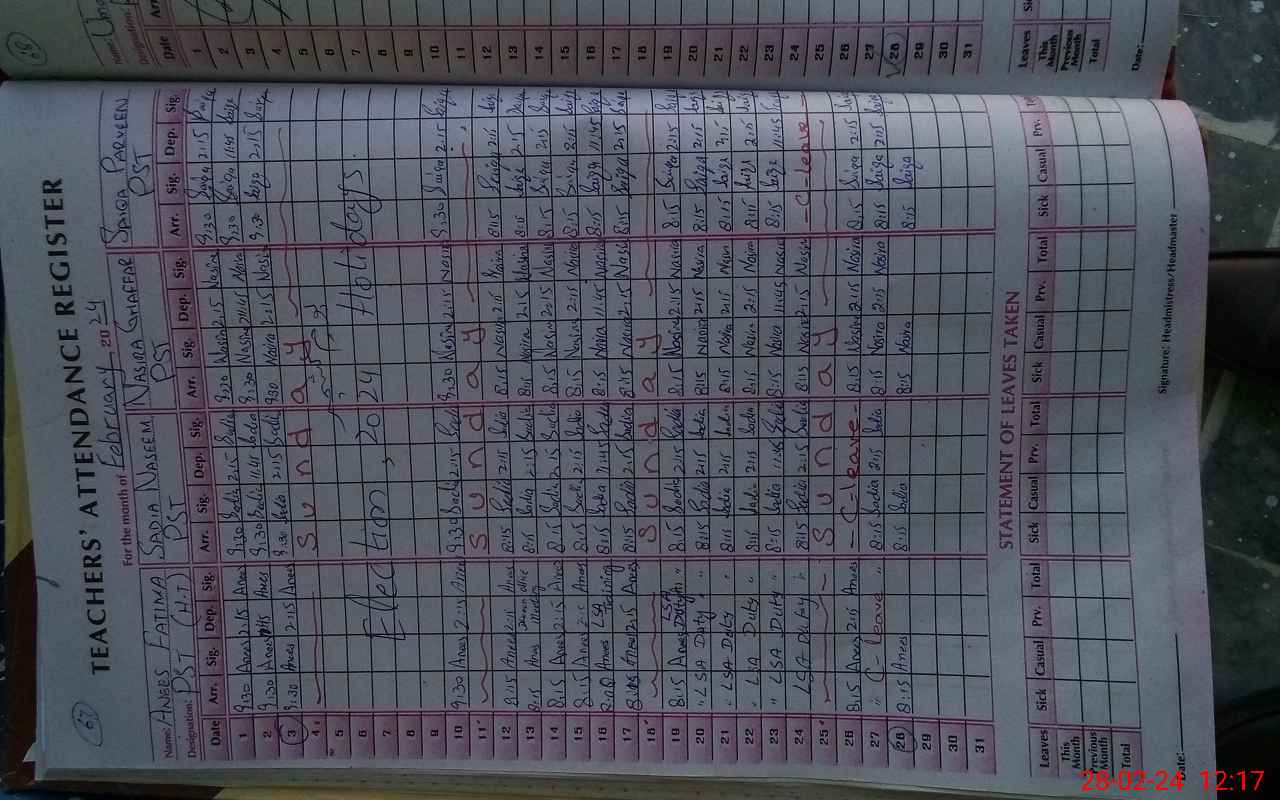 67
TEACHERS' ATTENDANCE REGISTER
For the month of February 2024
Name: ANEES FATIMA SADIA NASEEM NASIRA GHAFFAR SAIQA PARVEEN
Designation: PST (H.T) PST PST PST
Date Arr. Sig. Dep. Sig. Arr. Sig. Dep. Sig. Arr. Sig. Dep. Sig. Arr. Sig. Dep. Sig.
1 9:30 Anees 2:15 Anees 9:30 Sadia 2:15 Sadia 9:30 Nasira 2:15 Nasira 9:30 Saiqa 2:15 Saiqa
2 9:30 Anees 11:45 Anees 9:30 Sadia 11:45 Sadia 9:30 Nasira 11:45 Nasira 9:30 Saiqa 11:45 Saiqa
3 9:30 Anees 2:15 Anees 9:30 Sadia 2:15 Sadia 9:30 Nasira 2:15 Nasira 9:30 Saiqa 2:15 Saiqa
4 Sunday
5
6
7 Election, 2024 Holidays.
8
9
10 9:30 Anees 2:15 Anees 9:30 Sadia 2:15 Sadia 9:30 Nasira 2:15 Nasira 9:30 Saiqa 2:15 Saiqa
11 Sunday
12 8:15 Anees 2:15 Anees 8:15 Sadia 2:15 Sadia 8:15 Nasira 2:15 Nasira 8:15 Saiqa 2:15 Saiqa
13 8:15 Anees office Meeting 8:15 Sadia 2:15 Sadia 8:15 Nasira 2:15 Nasira 8:15 Saiqa 2:15 Saiqa
14 8:15 Anees 2:15 Anees 8:15 Sadia 2:15 Sadia 8:15 Nasira 2:15 Nasira 8:15 Saiqa 2:15 Saiqa
15 8:15 Anees 2:15 Anees 8:15 Sadia 2:15 Sadia 8:15 Nasira 2:15 Nasira 8:15 Saiqa 2:15 Saiqa
16 Anees LSA Training 8:15 Sadia 11:45 Sadia 8:15 Nasira 11:45 Nasira 8:15 Saiqa 11:45 Saiqa
17 8:15 Anees 2:15 Anees 8:15 Sadia 2:15 Sadia 8:15 Nasira 2:15 Nasira 8:15 Saiqa 2:15 Saiqa
18 Sunday
19 8:15 Anees LSA Duty " 8:15 Sadia 2:15 Sadia 8:15 Nasira 2:15 Nasira 8:15 Saiqa 2:15 Saiqa
20 " LSA Duty " 8:15 Sadia 2:15 Sadia 8:15 Nasira 2:15 Nasira 8:15 Saiqa 2:15 Saiqa
21 " LSA Duty " 8:15 Sadia 2:15 Sadia 8:15 Nasira 2:15 Nasira 8:15 Saiqa 2:15 Saiqa
22 " LSA Duty " 8:15 Sadia 2:15 Sadia 8:15 Nasira 2:15 Nasira 8:15 Saiqa 2:15 Saiqa
23 " LSA Duty " 8:15 Sadia 11:45 Sadia 8:15 Nasira 11:45 Nasira 8:15 Saiqa 11:45 Saiqa
24 LSA Duty " 8:15 Sadia 2:15 Sadia 8:15 Nasira 2:15 Nasira - C - leave -
25 Sunday
26 8:15 Anees 2:15 Anees - C - leave - 8:15 Nasira 2:15 Nasira 8:15 Saiqa 2:15 Saiqa
27 " C - leave " 8:15 Sadia 2:15 Sadia 8:15 Nasira 2:15 Nasira 8:15 Saiqa 2:15 Saiqa
28 8:15 Anees 8:15 Sadia 8:15 Nasira 8:15 Saiqa
29
30
31
STATEMENT OF LEAVES TAKEN
Leaves Sick Casual Prv. Total Sick Casual Prv. Total Sick Casual Prv. Total Sick Casual Prv.
This Month
Previous Month
Total
Date: Signature: Headmistress/Headmaster
68
Name:
Designation:
Date Arr.
1
2
3
4
5
6
7
8
9
10
11
12
13
14
15
16
17
18
19
20
21
22
23
24
25
26
27
28
29
30
31
Leaves
This Month
Previous Month
Total
Date:
28-02-24 12:17